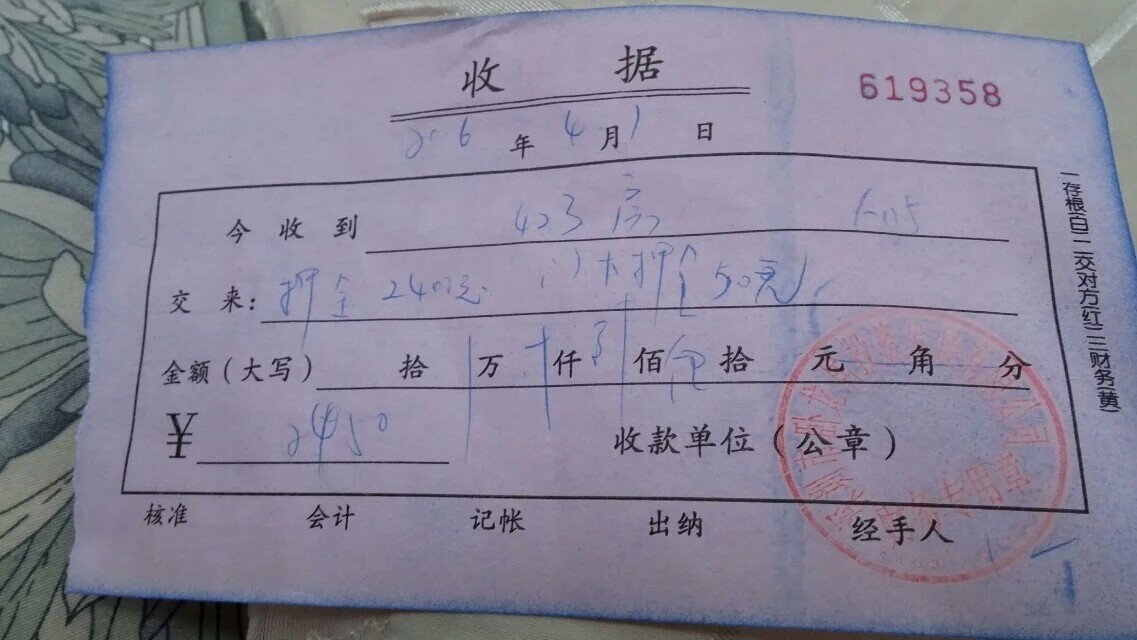 收 据
619358
2016 年 4 月 1 日
今 收 到 403房
交 来: 押金 2400元 门卡押金50元
金额(大写) 拾 万 仟 佰 拾 元 角 分
¥ 2450 收款单位(公章)
核准 会计 记帐 出纳 经手人
一存根(白)二交对方(红)三财务(黄)